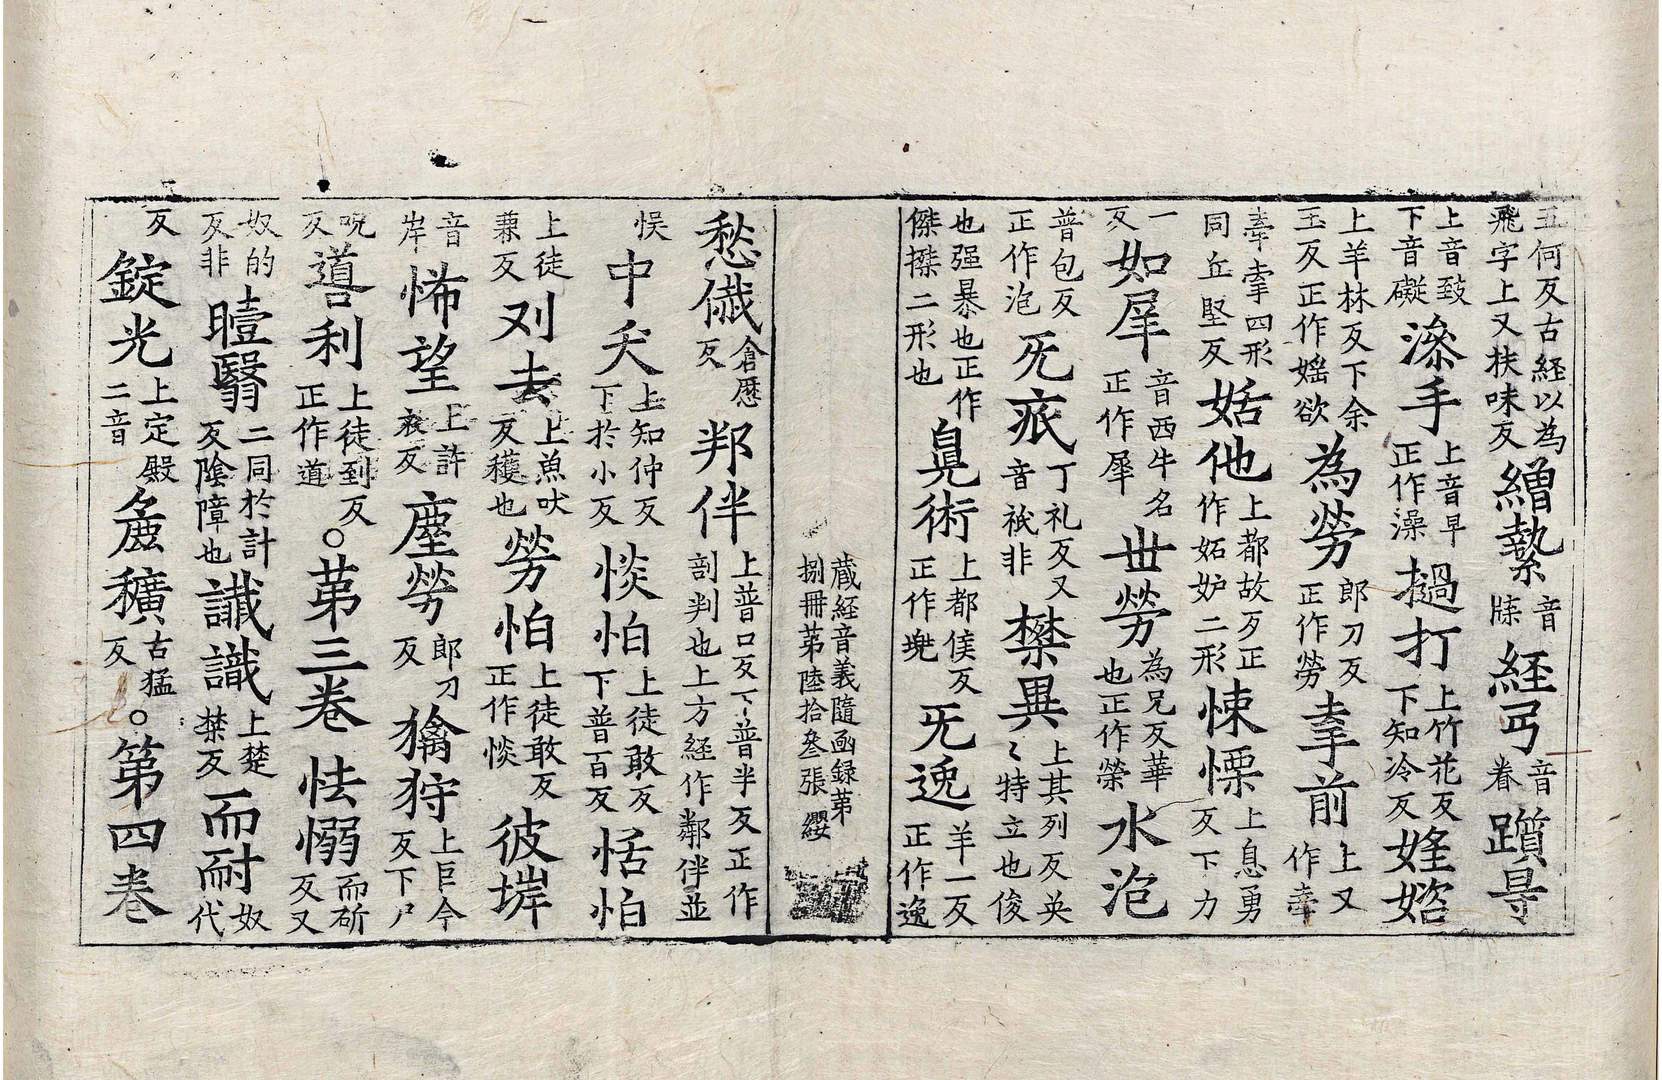 五何反古経以為飛字上又扶味反繒縶音牍経丏音眷躓㝵
上音致下音礙㴱手上音早正作澡撾打上竹花反下知冷反婬婬
上羊林反下余玉反正作媱欲為勞郎刀反正作勞㸯前上又作牽
牽㸯四形同丘堅反姤他上都故反正作妬妒二形悚慄上息勇反下力
一反如犀音西牛名正作犀世勞為兄反華也正作榮水泡
普包反正作泡旡疷丁礼反又音祇非桀異上其列反英〻特立也俊
也強暴也正作傑搩二形也㒵術上都侯反正作兠旡逸羊一反正作逸
蔵経音義隨函録苐捌冊苐陸拾叁張 纓
愁慽倉歷反判伴上普口反下普半反正作剖判也上方経作鄰伴並
悮中夭上知仲反下於小反惔怕上徒敢反下普百反恬怕
上徒兼反刈去上魚吠反穫也勞怕上徒敢反正作惔彼㟁
音岸悕望上許衣反塵勞郎刀反擒狩上巨今反下尸
呪反噵利上徒到反正作道。苐三巻怯愵而斫反又
奴的反非曀翳二同於計反陰障也讖識上楚禁反而耐奴代
反錠光上定殿二音麁穬古猛反。苐四巻